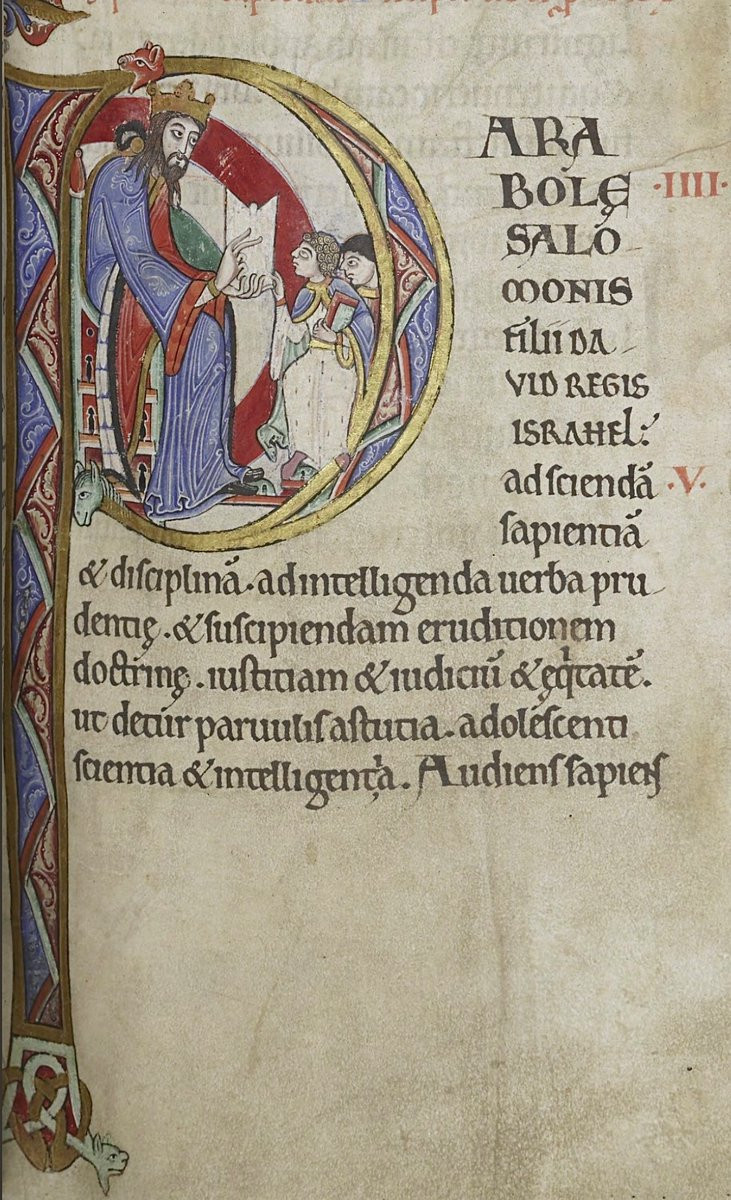 PARA
BOLĘ ·IIII·
SALO
MONIS
FILII DA
VID REGIS
ISRAHEL:
ad sciendā ·V·
sapientiā
& disciplinā. ad intelligenda uerba pru
dentię. & suscipiendam eruditionem
doctrinę. iustitiam & iudiciū & ęqͥtatē.
ut detur paruulis astutia. adolescenti
scientia & intelligentia. Audiens sapiens